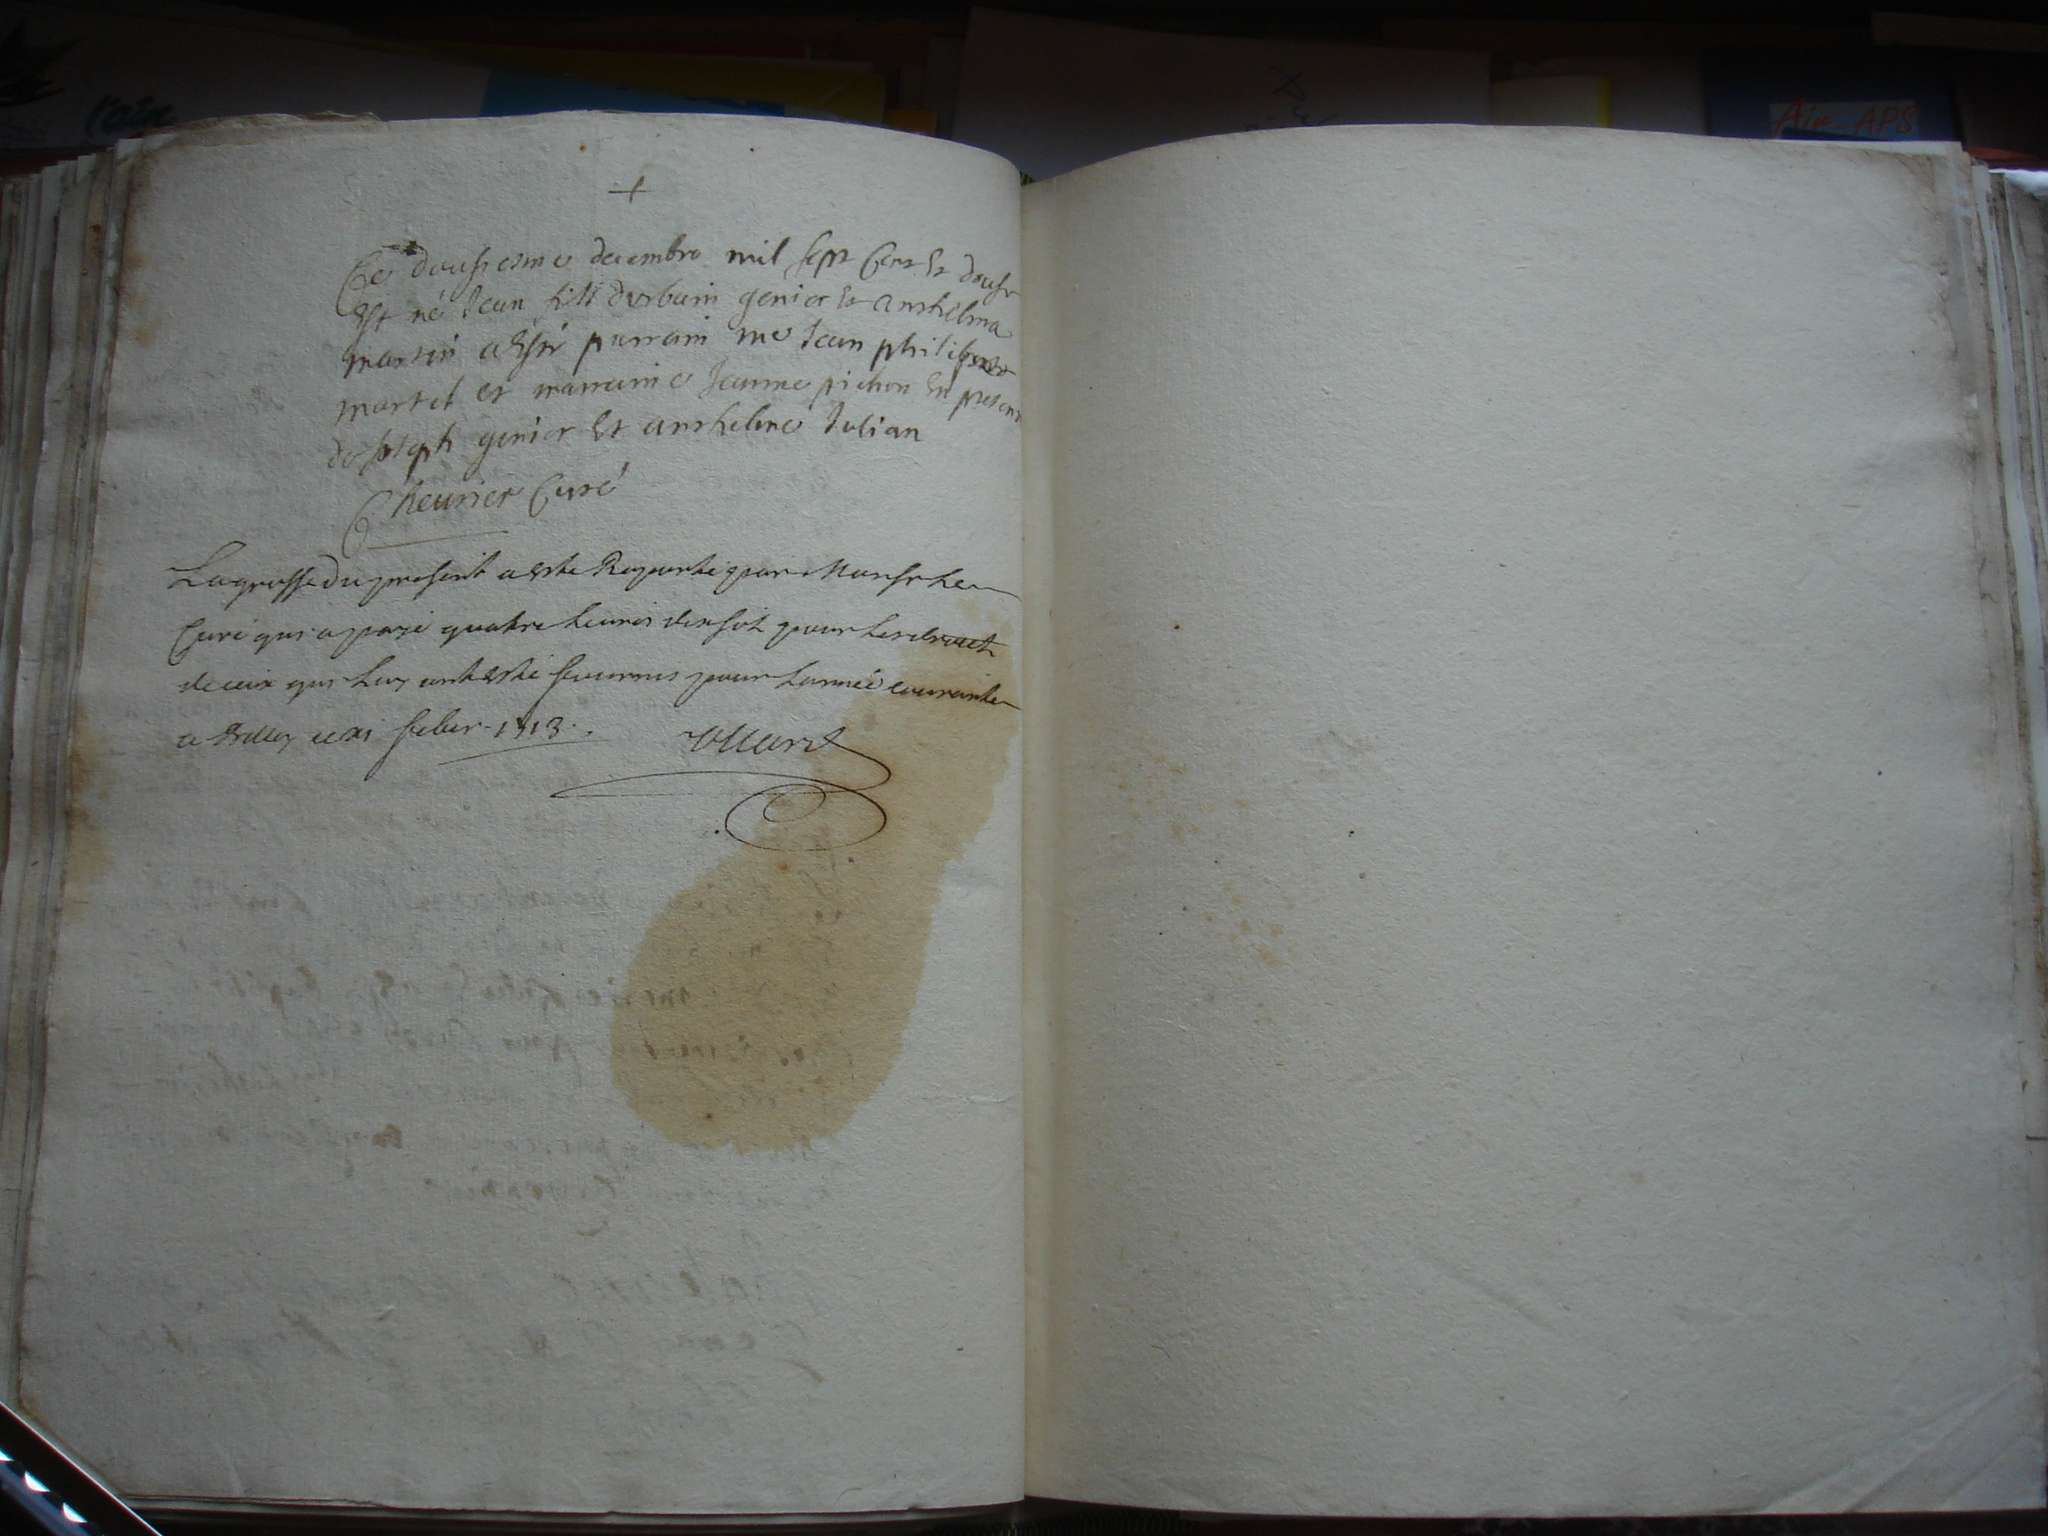 l'ain
Aire APS
+
Ce dousiesme decembre mil sept Cent Et douse
Est né Jean fils durbain genier Et anthelma
martin a Esté parrain me Jean philibert
martel et marraine Jeanne pichon En presence
de joseph genier Et anthelme Julian
Cheurier Curé
La grosse du present a Esté Raporté par Monsr Le
Curé qui a payé quatre Liures dix sols pour Les droict
de ceux qui Luy ont Esté fournis pour Lannée courante
a Belley ce xi febur. 1713.